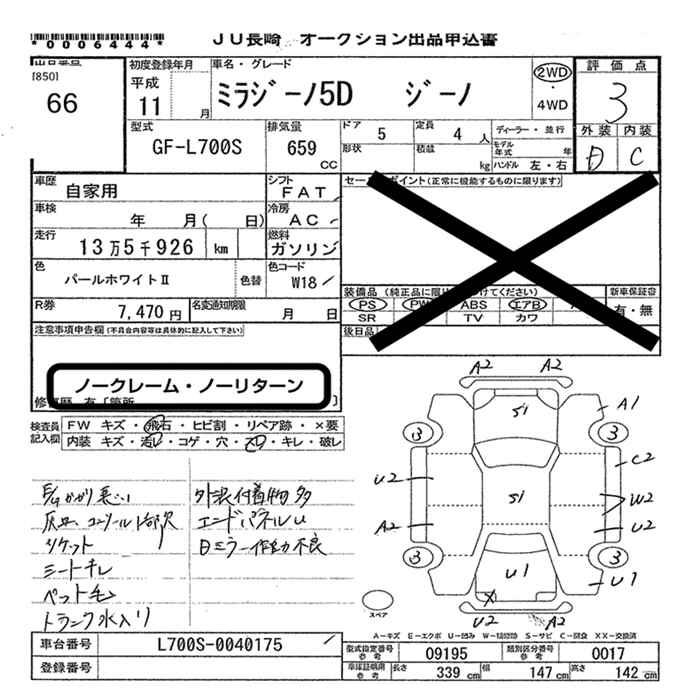 JU長崎 オークション出品申込書
*0006444*
出品番号
[850]
66
初度登録年月
平成
11 月
車名・グレード
ミラジーノ5D ジーノ
2WD
・
4WD
評価点
3
外装 内装
D C
型式
GF-L700S
排気量
659
CC
ドア 5
定員 4 人
形状
積載 kg
ディーラー・並行
モデル年式 年
ハンドル 左・右
車歴 自家用
シフト FAT
車検 年 月( 日)
冷房 AC
走行 13万5千926 km
燃料 ガソリン
色 パールホワイトⅡ
色替
色コード W18
R券 7,470円
名変通知期限 月 日
セールスポイント(正常に機能するものに限ります)
装備品
PS PW ABS エアB
SR TV カワ
新車保証書
有・無
後日品
注意事項申告欄(不具合内容等は具体的に記入して下さい)
ノークレーム・ノーリターン
修復歴 有
検査員記入欄
FW キズ・飛石・ヒビ割・リペア跡・×要
内装 キズ・汚レ・コゲ・穴・スレ・キレ・破レ
外装付着物多
エンドパネルU
シートキレ
トランク水入り
A2 A2
Si
A1
3 3
C2
U2
Si
W2
A2 U2
3 3
U1 U1
X
U2 A2
スペア
A-キズ E-エクボ U-凹み S-サビ XX-交換済
車台番号 L700S-0040175
登録番号
型式指定番号参考 09195
類別区分番号参考 0017
車庫証明用参考 長さ 339 cm 幅 147 cm 高さ 142 cm